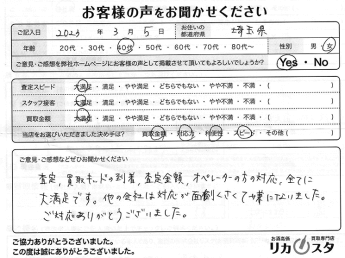 お客様の声をお聞かせください
ご記入日 2023 年 3 月 5 日 お住いの都道府県 埼玉県
年齢 20代・30代・40代・50代・60代・70代・80代〜 性別 男・女
ご意見・ご感想を弊社ホームページにお客様の声として掲載させて頂いてもよろしいでしょうか? Yes・No
査定スピード 大満足・満足・やや満足・どちらでもない・やや不満・不満・( )
スタッフ接客 大満足・満足・やや満足・どちらでもない・やや不満・不満・( )
買取金額 大満足・満足・やや満足・どちらでもない・やや不満・不満・( )
当店をお選びいただきました決め手は? 買取金額・対応力・利便性・スピード・その他( )
ご意見・ご感想などぜひお聞かせください
査定、買取キットの到着、査定金額、オペレーターの方の対応、全てに
大満足です。他の会社は対応が面倒くさくて嫌になりました。
ご対応ありがとうございました。
ご協力ありがとうございました。
この度は誠にありがとうございました。
お酒高価 買取専門店
リカスタ